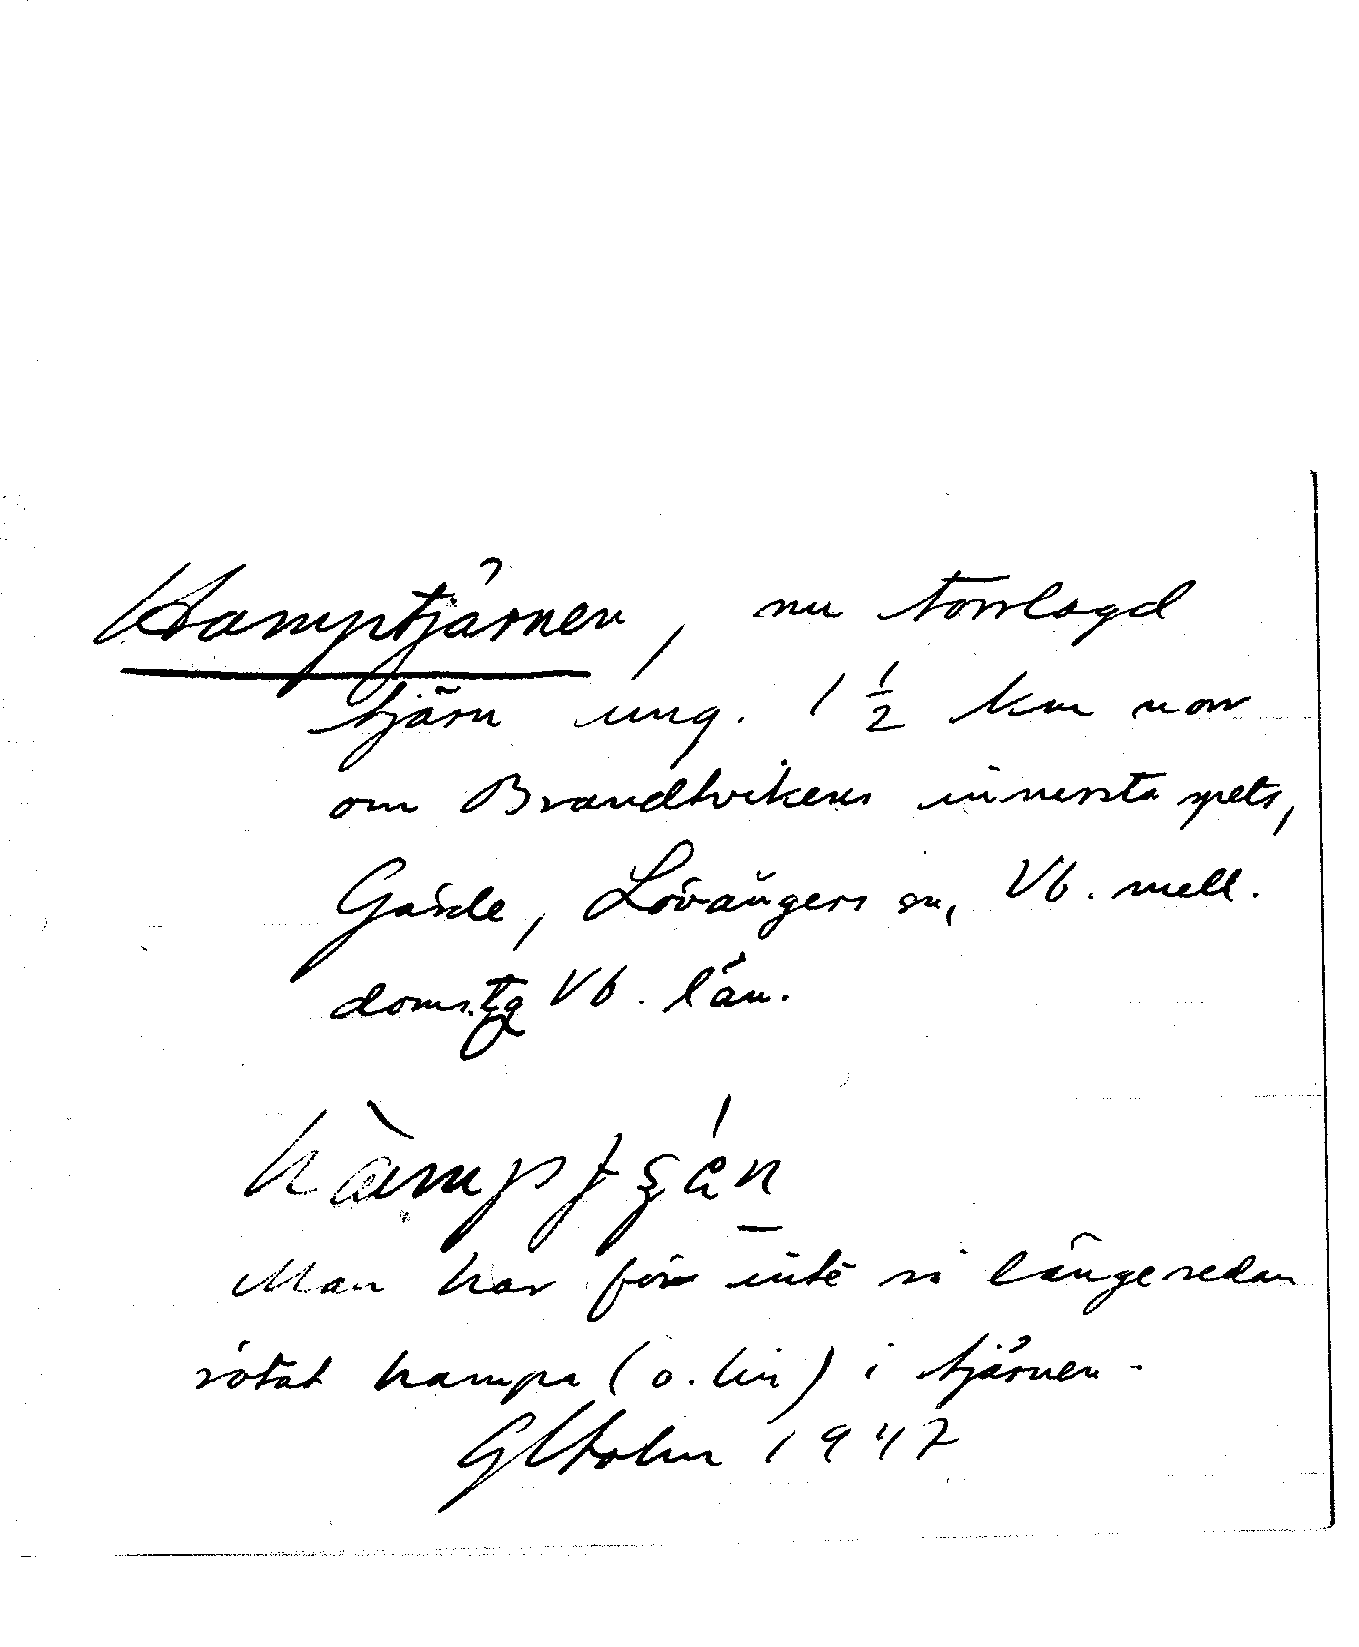 Hamptjärnen, nu torrlagd
tjärn ung. 1 1/2 km norr
om Brandtvikens innersta spets,
Gärde, Lövångers sn, Vb. mell.
doms.tg Vb. län.
hàmptʂán
Man har för inte så länge sedan
rötat hampa (o. lin) i tjärnen.
GHolm 1947